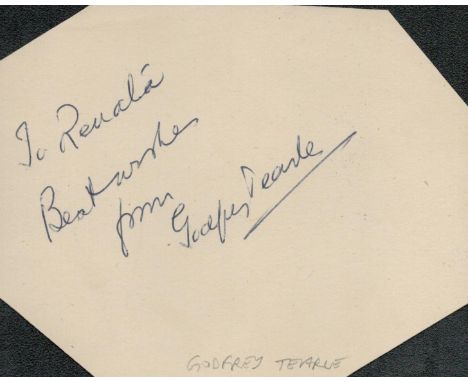 To Renata
Best wishes
from
Godfrey Tearle
GODFREY TEARLE